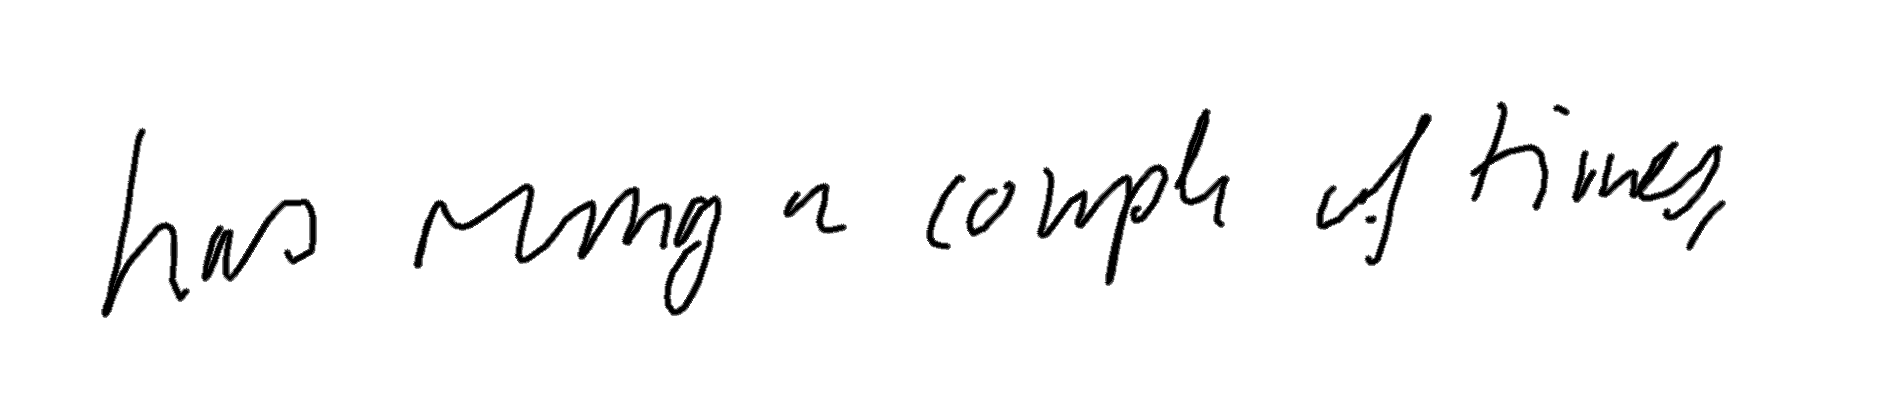 has rung a couple of times,